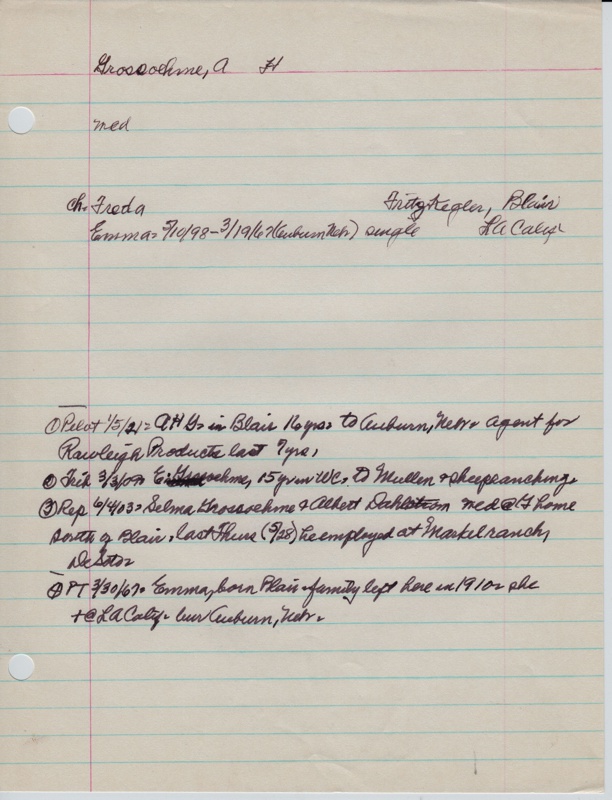 Grossoehme, A H
med
ch. Freda Fritz Kegler, Blair
Emma - 5/10/98 - 3/19/67 (Auburn Nebr) single LA Calif
① Pilot 1/5/21 = A H G - in Blair 16 yrs - to Auburn, Nebr - agent for
Rawleigh Products last 7 yrs.
② Trib 3/3/09 - E. Grossoehme, 15 yr in WC, to Mullen + sheepranching
③ Rep 6/4/03 - Selma Grossoehme + Albert Dahlstrom med @ G home
south of Blair, last Thurs (5/28) he employed at Markel ranch,
DeSoto
④ PT 3/30/67 - Emma, born Blair - family left here in 1910 - she
+ @ LA Calif - bur Auburn, Nebr.